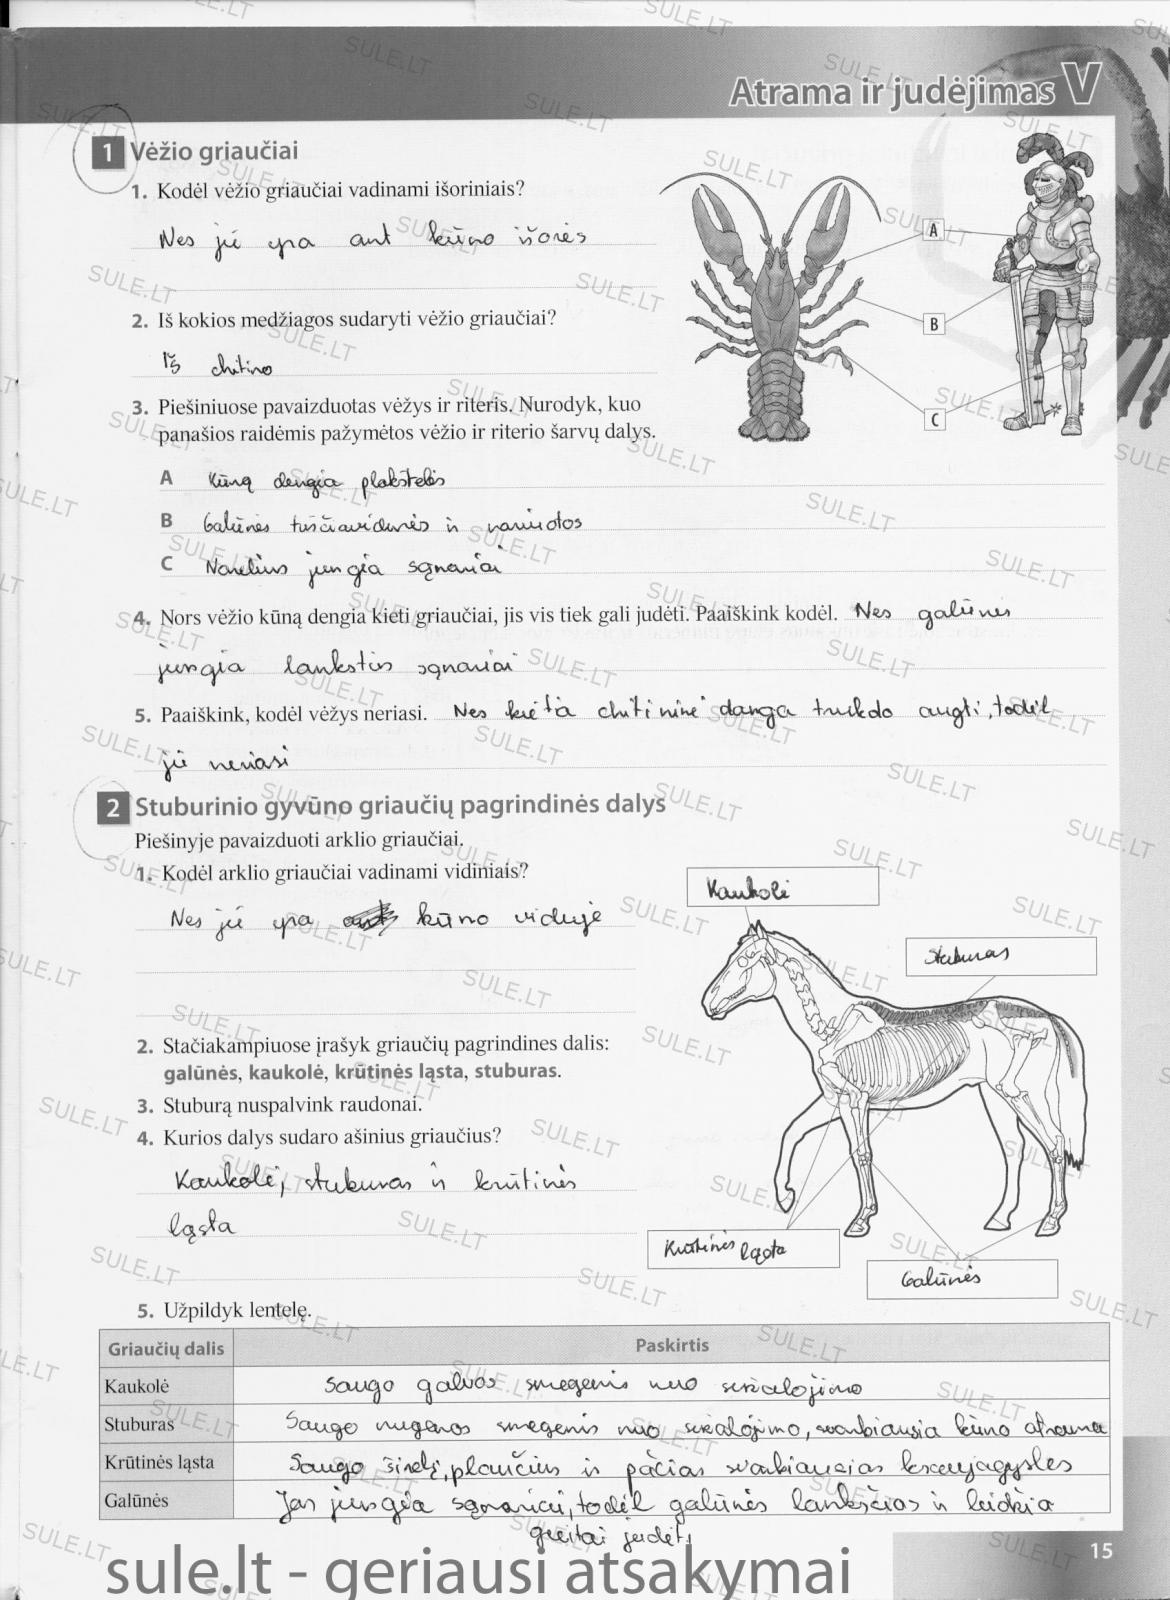 Atrama ir judėjimas V
1 Vėžio griaučiai
1. Kodėl vėžio griaučiai vadinami išoriniais?
Nes jie yra ant kūno išorės
2. Iš kokios medžiagos sudaryti vėžio griaučiai?
Iš chitino
3. Piešiniuose pavaizduotas vėžys ir riteris. Nurodyk, kuo
panašios raidėmis pažymėtos vėžio ir riterio šarvų dalys.
A
B
C
A Kūną dengia plokštelės
B Galūnės tuščiavidurės ir nariuotos
C Narelius jungia sąnariai
4. Nors vėžio kūną dengia kieti griaučiai, jis vis tiek gali judėti. Paaiškink kodėl. Nes galūnes
jungia lankstūs sąnariai
5. Paaiškink, kodėl vėžys neriasi. Nes kieta chitininė danga trukdo augti, todėl
jie neriasi
2 Stuburinio gyvūno griaučių pagrindinės dalys
Piešinyje pavaizduoti arklio griaučiai.
1. Kodėl arklio griaučiai vadinami vidiniais?
Nes jie yra kūno viduje
Kaukolė
Stuburas
2. Stačiakampiuose įrašyk griaučių pagrindines dalis:
galūnės, kaukolė, krūtinės ląsta, stuburas.
3. Stuburą nuspalvink raudonai.
4. Kurios dalys sudaro ašinius griaučius?
Kaukolė, stuburas ir krūtinės
ląsta
Krūtinės ląsta
Galūnės
5. Užpildyk lentelę.
Griaučių dalis Paskirtis
Kaukolė Saugo galvos smegenis nuo sužalojimo
Stuburas Saugo nugaros smegenis nuo sužalojimo, svarbiausia kūno atrama
Krūtinės ląsta Saugo širdį, plaučius ir pačias svarbiausias kraujagysles
Galūnės Jas jungia sąnariai, todėl galūnės lanksčios ir leidžia
greitai judėti
15
sule.lt - geriausi atsakymai
SULE.LT